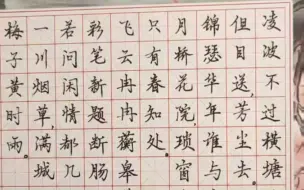 凌波不过横塘
但目送,芳尘去。
锦瑟华年谁与
月桥花院,琐窗
只有春知处。
飞云冉冉蘅皋
彩笔新题断肠
若问闲情都几
一川烟草,满城
梅子黄时雨。